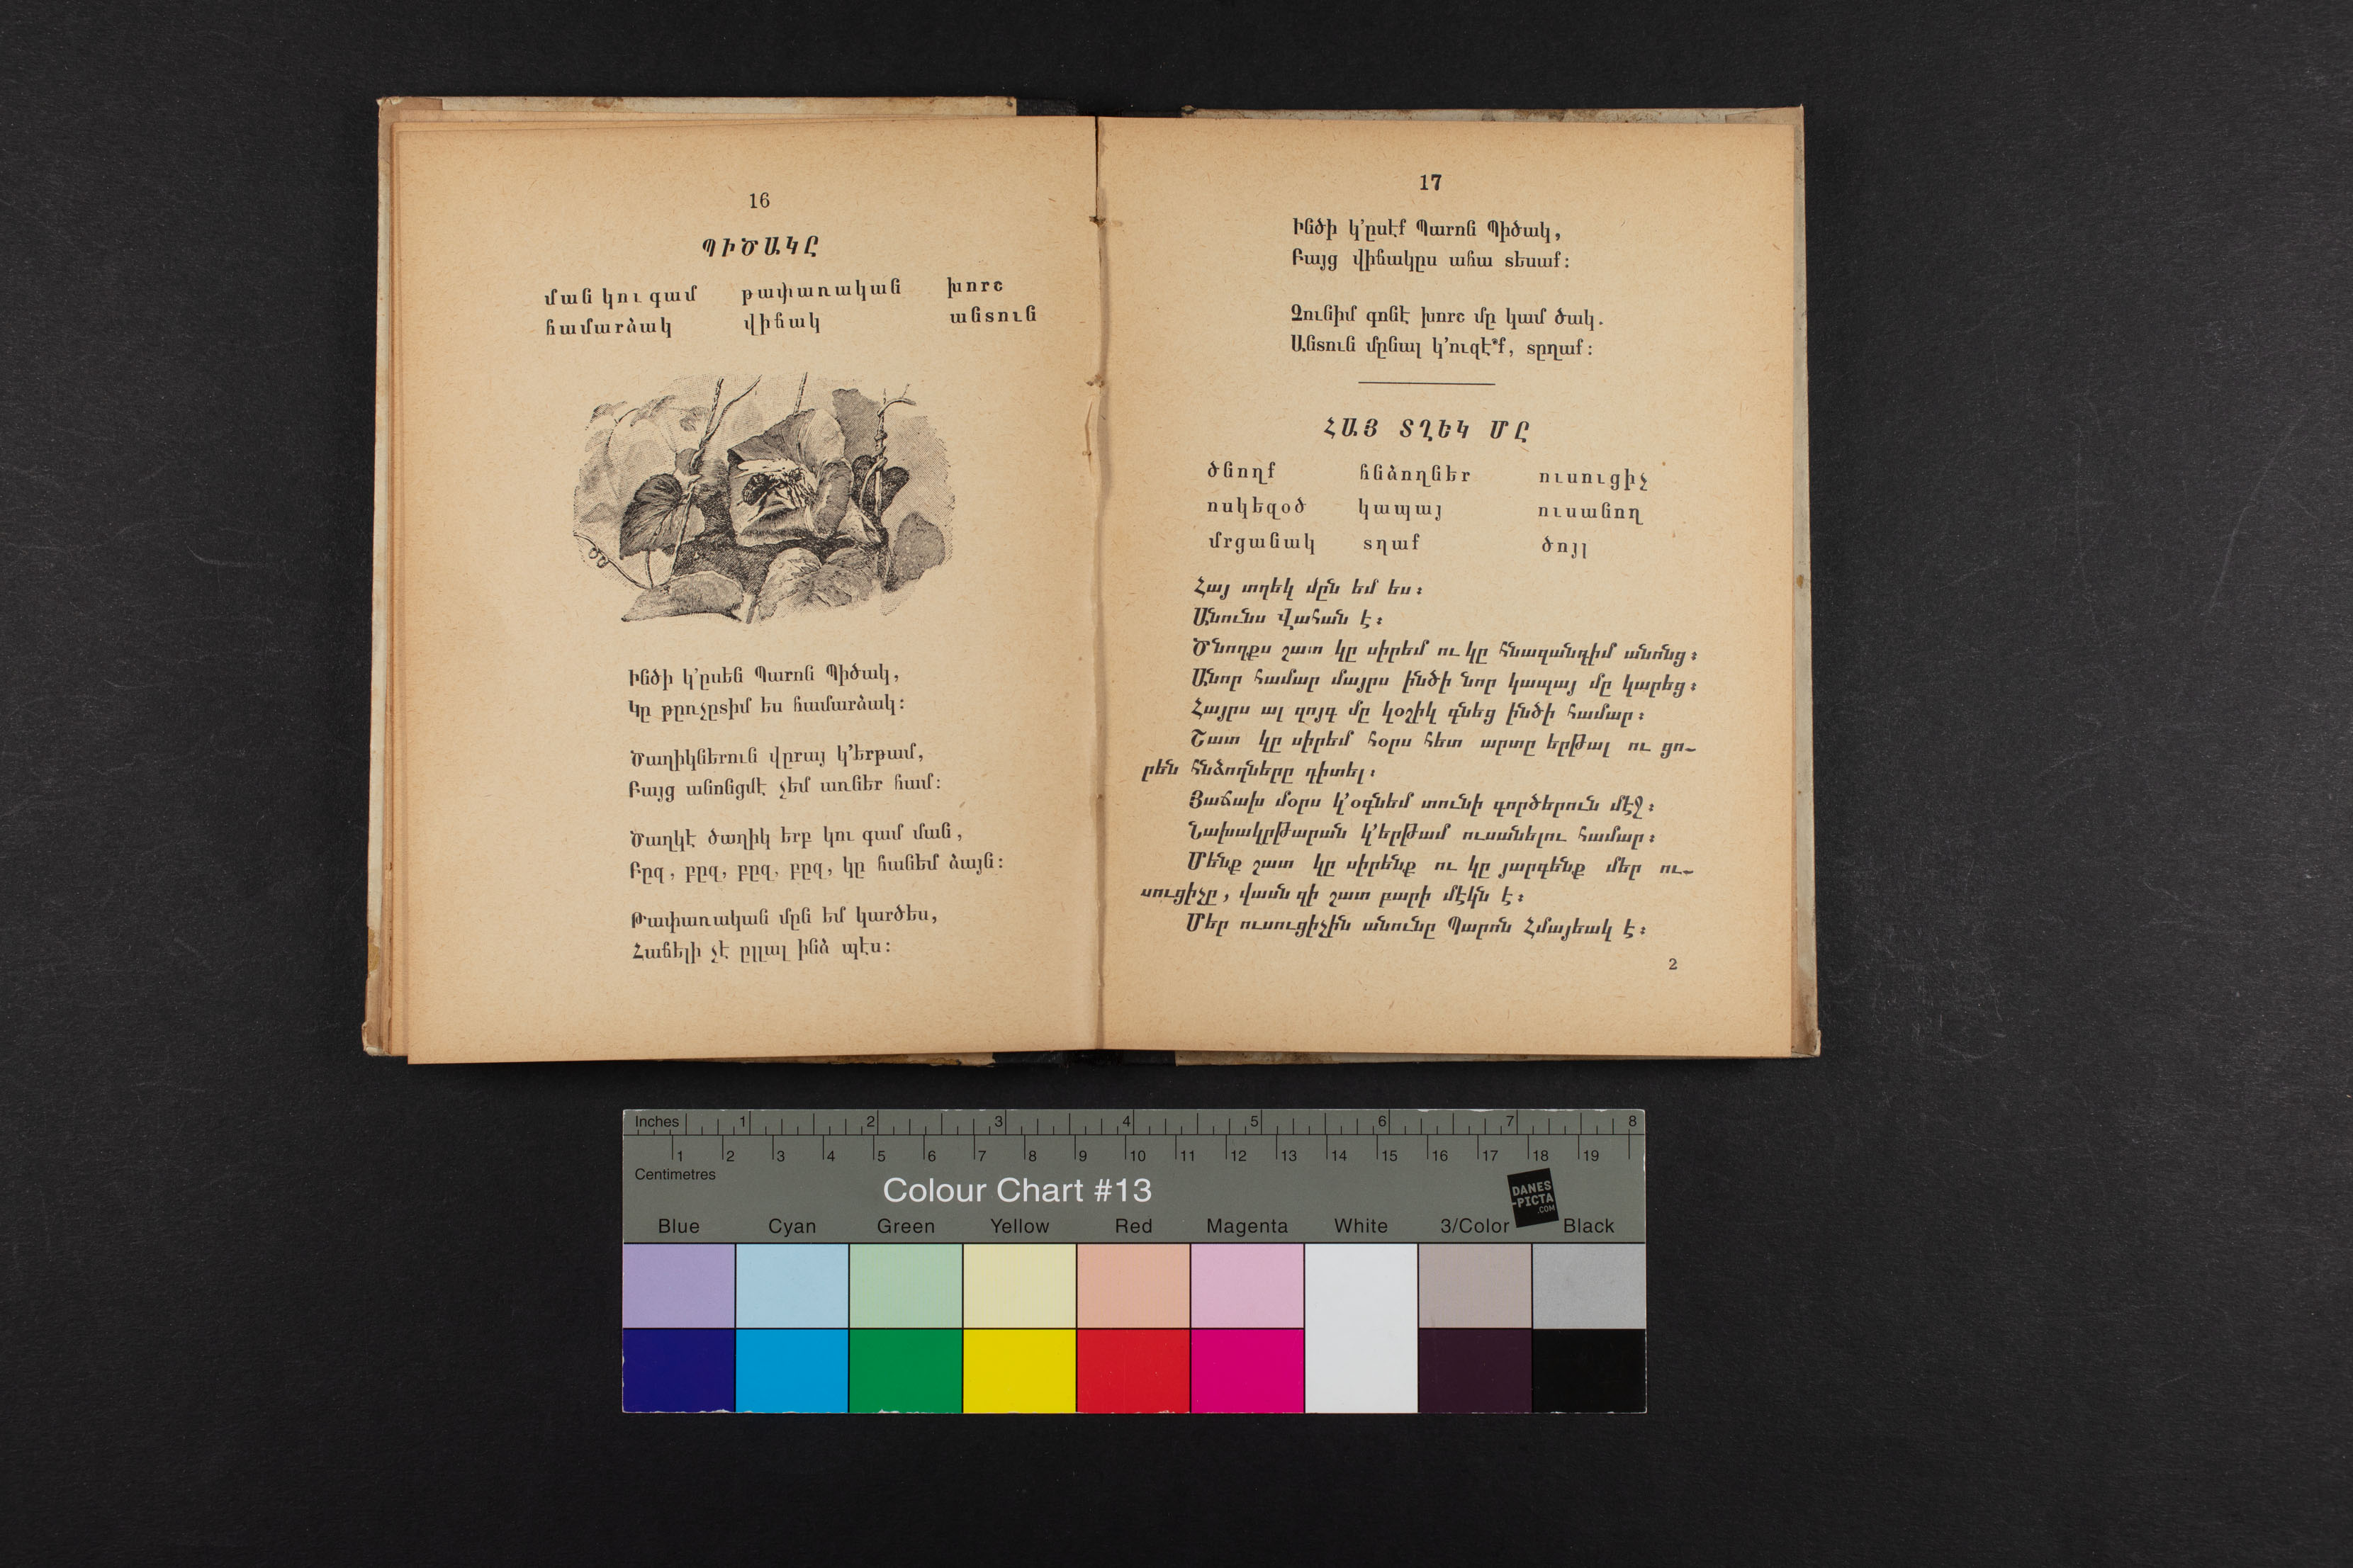 16
ՊԻԾԱԿԸ
ման կու գամ թափառական խորշ
համարձակ վիճակ անտուն
Ինծի կ՚ըսեն Պարոն Պիծակ,
Կը թըռչըտիմ ես համարձակ։
Ծաղիկներուն վըրայ կ՚երթամ,
Բայց անոնցմէ չեմ առներ համ։
Ծաղկէ ծաղիկ երբ կու գամ ման,
Բըզ, բըզ, բըզ, բըզ, կը հանեմ ձայն։
Թափառական մըն եմ կարծես,
Հաճելի չէ ըլլալ ինձ պէս։
17
Ինծի կ՚ըսէք Պարոն Պիծակ,
Բայց վիճակըս ահա տեսաք։
Չունիմ գոնէ խորշ մը կամ ծակ.
Անտուն մընալ կ՚ուզէ՞ք, տըղաք։
ՀԱՅ ՏՂԵԿ ՄԸ
ծնողք հնձողներ ուսուցիչ
ոսկեզօծ կապայ ուսանող
մրցանակ տղաք ծոյլ
Հայ տղեկ մըն եմ ես։
Անունս Վահան է։
Ծնողքս շատ կը սիրեմ ու կը հնազանդիմ անոնց։
Անոր համար մայրս ինծի նոր կապայ մը կարեց։
Հայրս ալ զոյգ մը կօշիկ գնեց ինծի համար։
Շատ կը սիրեմ հօրս հետ արտը երթալ ու ցո-
րեն հնձողները դիտել։
Յաճախ մօրս կ՚օգնեմ տունի գործերուն մէջ։
Նախակրթարան կ՚երթամ ուսանելու համար։
Մենք շատ կը սիրենք ու կը յարգենք մեր ու-
սուցիչը, վասն զի շատ բարի մէկն է։
Մեր ուսուցիչին անունը Պարոն Հմայեակ է։
2
Inches 1 2 3 4 5 6 7 8
1 2 3 4 5 6 7 8 9 10 11 12 13 14 15 16 17 18 19
Centimetres
Colour Chart #13
DANES
-PICTA
.COM
Blue Cyan Green Yellow Red Magenta White 3/Color Black